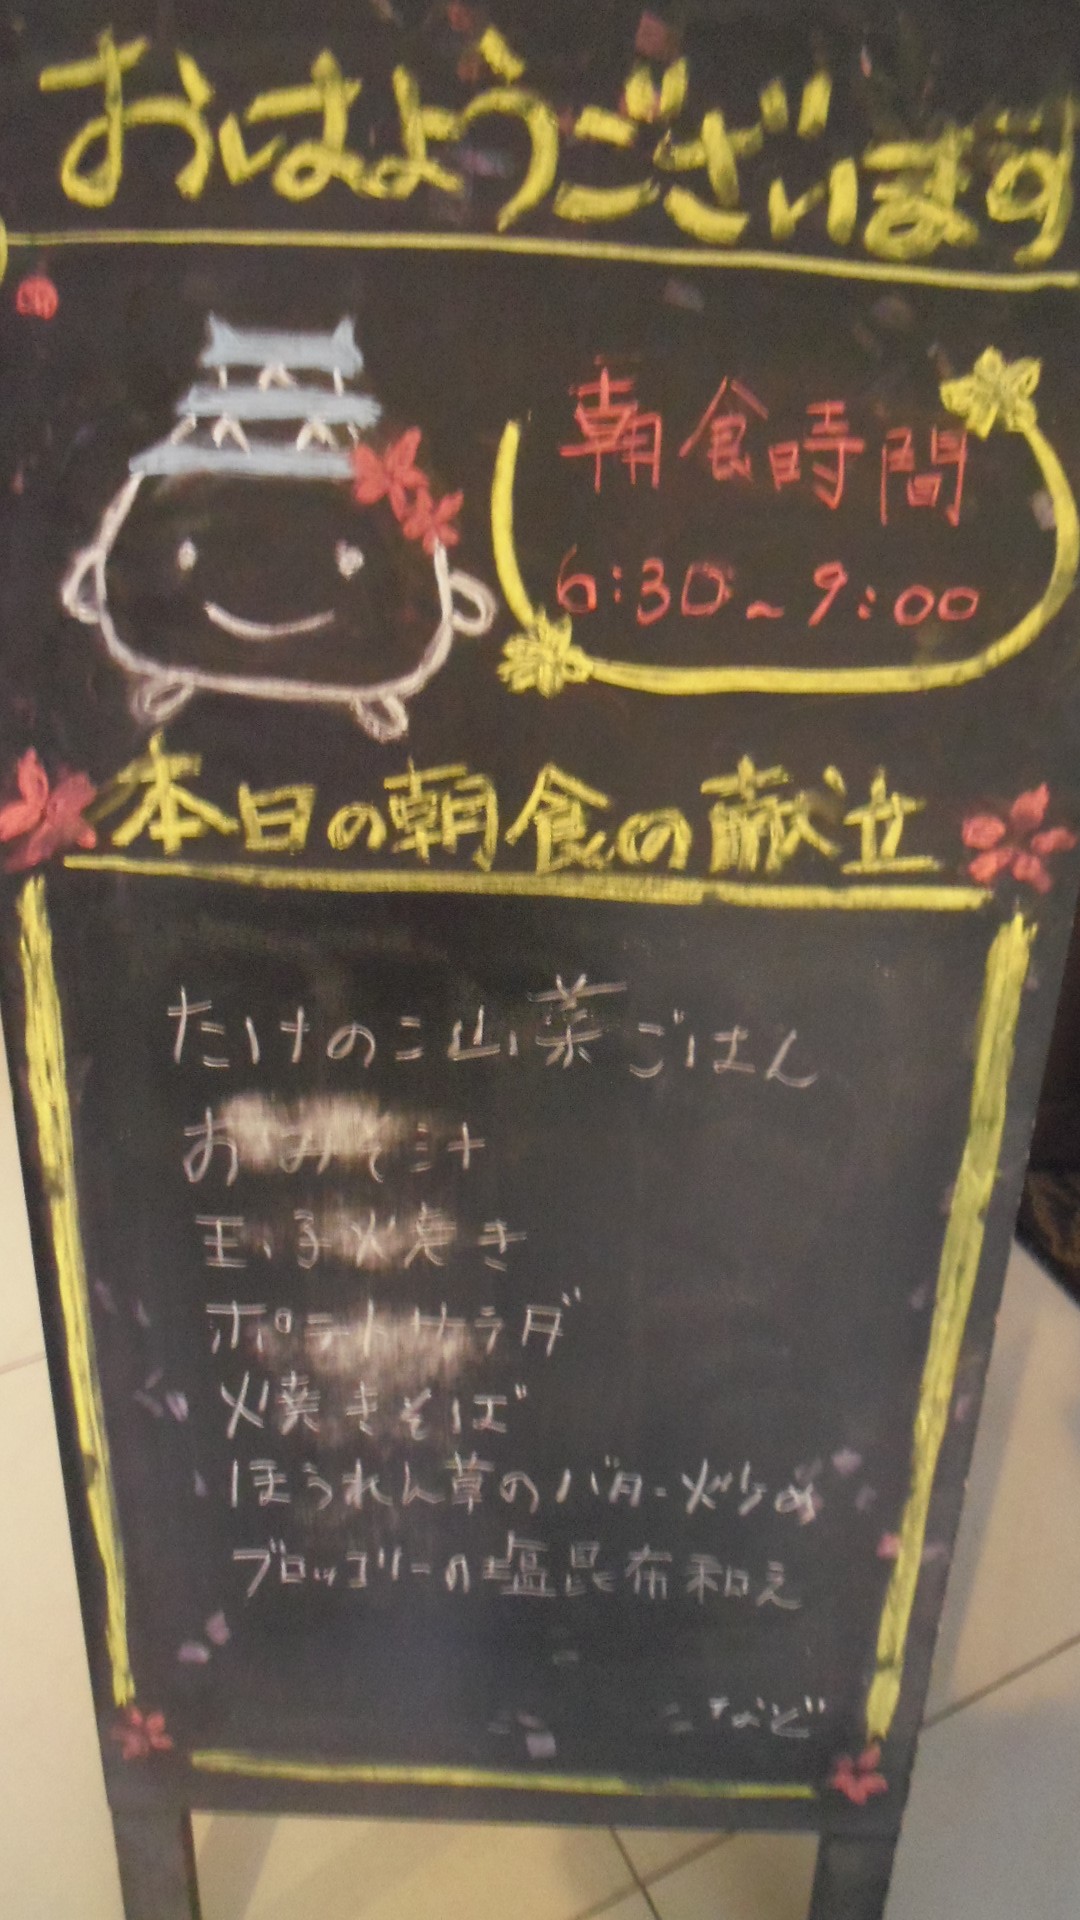 おはようございます
朝食時間
6:30~9:00
本日の朝食の献立
たけのこ山菜ごはん
おみそ汁
玉子焼き
ポテトサラダ
焼きそば
ほうれん草のバター炒め
ブロッコリーの塩昆布和え
など